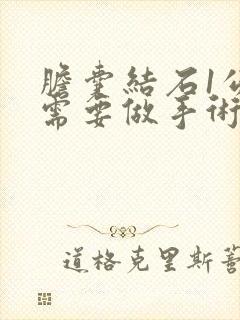 膽囊結石1公
需要做手術
道格克里斯蒂